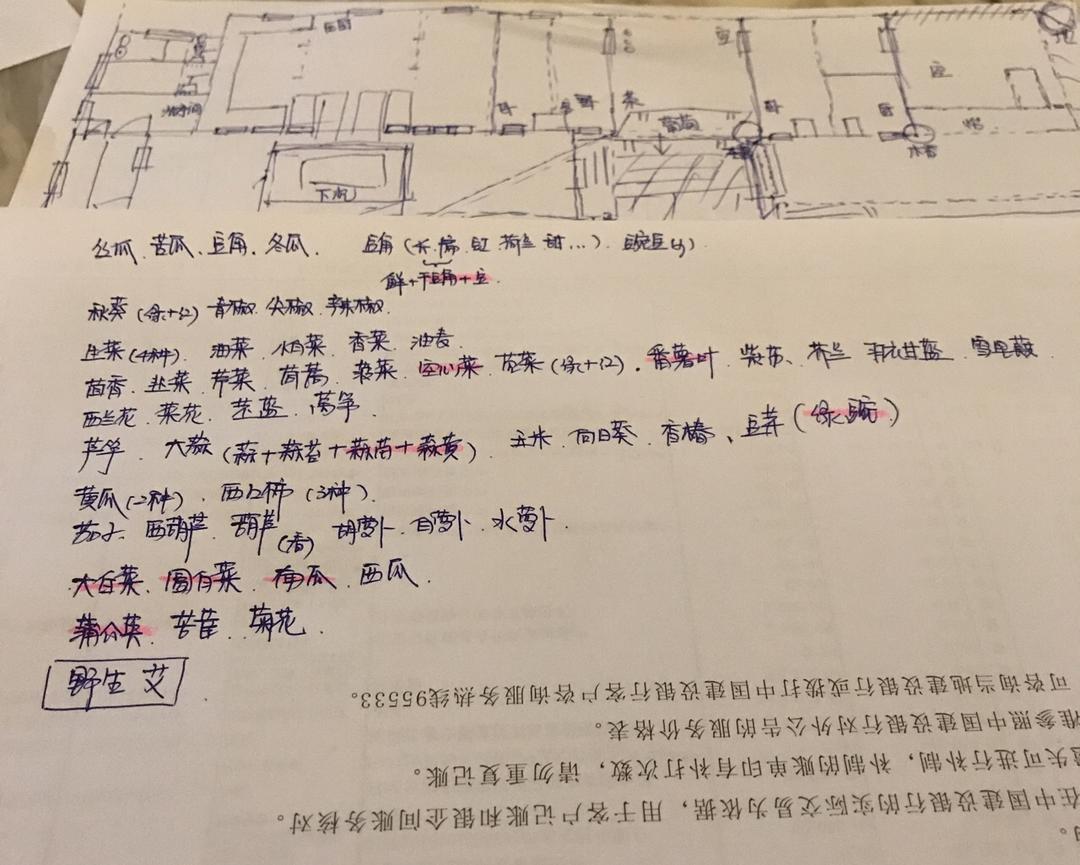 下沉
丝瓜、苦瓜、豆角、冬瓜． 豆角（长.扁.豇.荷兰.甜…）．豌豆
鲜+干豆角+豆．
秋葵（绿+红）青椒.尖椒.辣椒．
生菜（4种）．油菜．香菜．油麦．
茴香．韭菜．芹菜．茼蒿．空心菜．苋菜（绿+红）．番薯叶．紫苏、芥兰 羽衣甘蓝．雪里蕻
西兰花．菜花．苤蓝．莴笋．
芦笋．大蒜（蒜+蒜苔+蒜苗+蒜黄）．玉米．向日葵．香椿、豆芽（绿.豌．）
黄瓜（2种）．西红柿（3种）．
茄子．西葫芦．葫芦（看）胡萝卜．白萝卜．水萝卜．
大白菜、圆白菜．南瓜．西瓜．
蒲公英．苦苣．菊花．
野生 艾
可咨询当地建设银行或拨打中国建设银行客户咨询服务热线95533。
准参照中国建设银行对外公告的服务价格表。
遗失可进行补制，补制的账单印有补打次数，请勿重复记账。
在中国建设银行的实际交易为依据，用于客户记账和银企间账务核对。